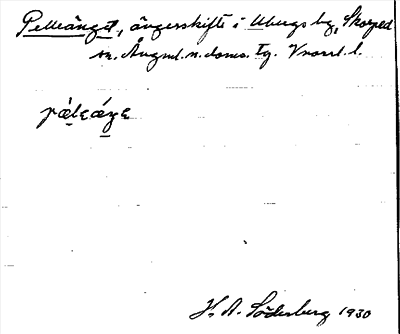 Pelleänget, ängesskifte i Ubergs by, Skorped
sn. Ångml. n. doms. tg. Vnorrl. l.
pæ̀lɛæ̀ŋɛ
H. A. Söderberg 1930